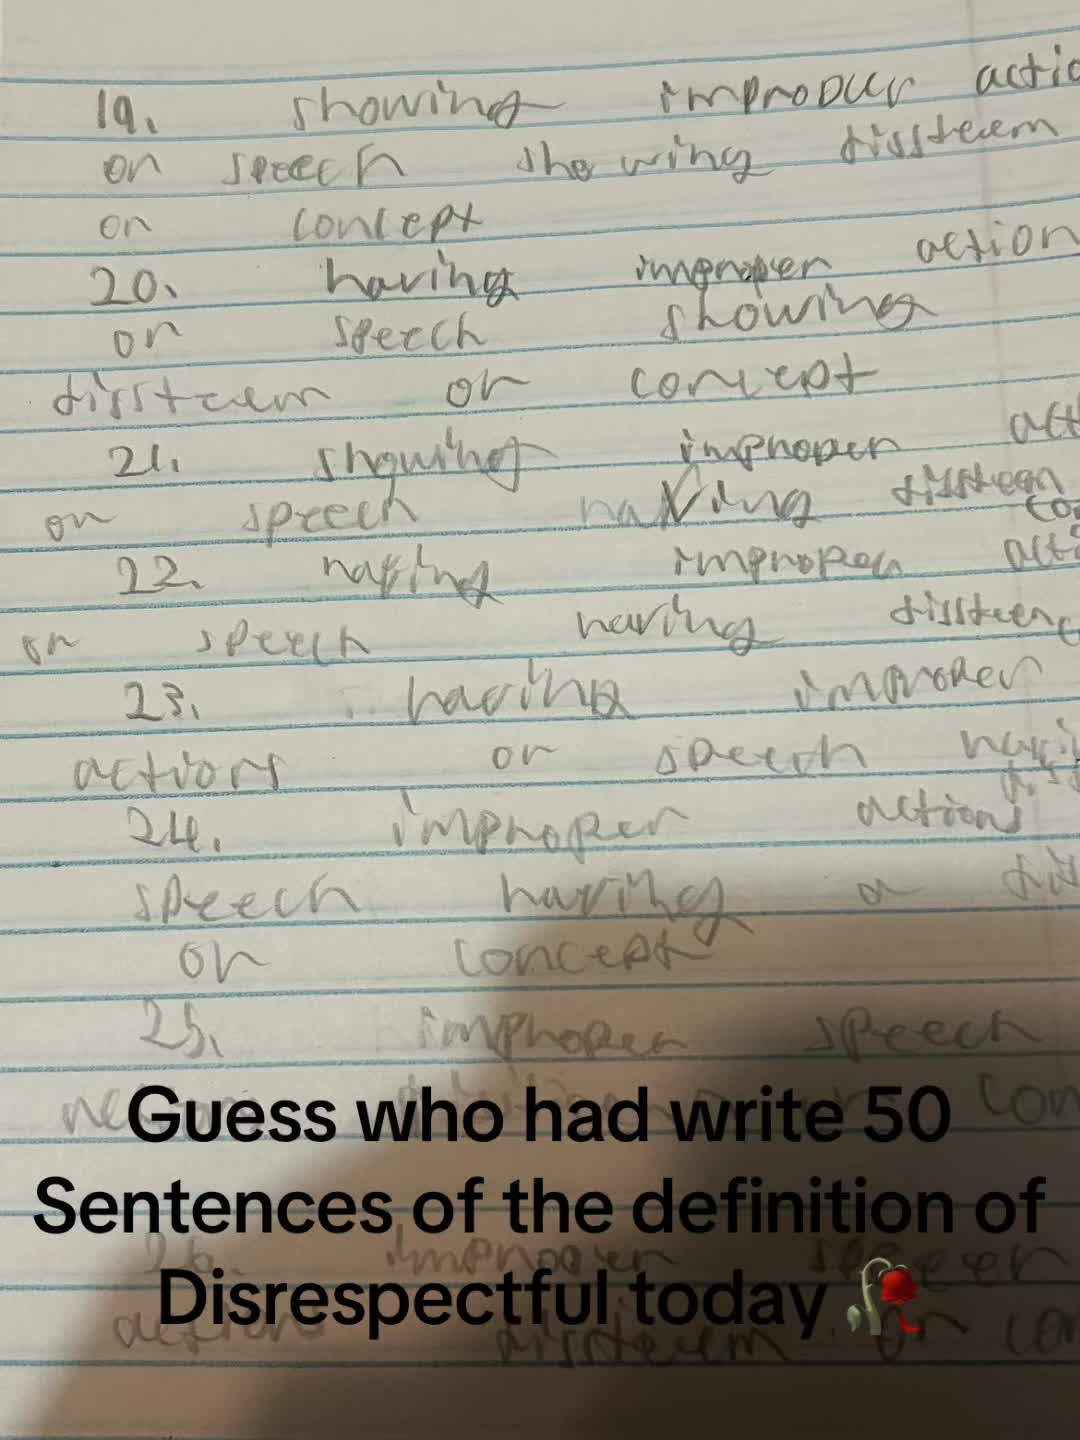 19. showing improper actio
on speech showing dissteem
on concept
20. having improper action
or speech showing
dissteem or concept
21. showing improper act
on speech having dissteem
22. having improper acti
or speech having dissteem
23. having improper
actions or speech havi
24. improper actions
speech having a dis
or concept
25. improper speech
con
26. improper
action dissteem or con
Guess who had write 50
Sentences of the definition of
Disrespectful today 🥀